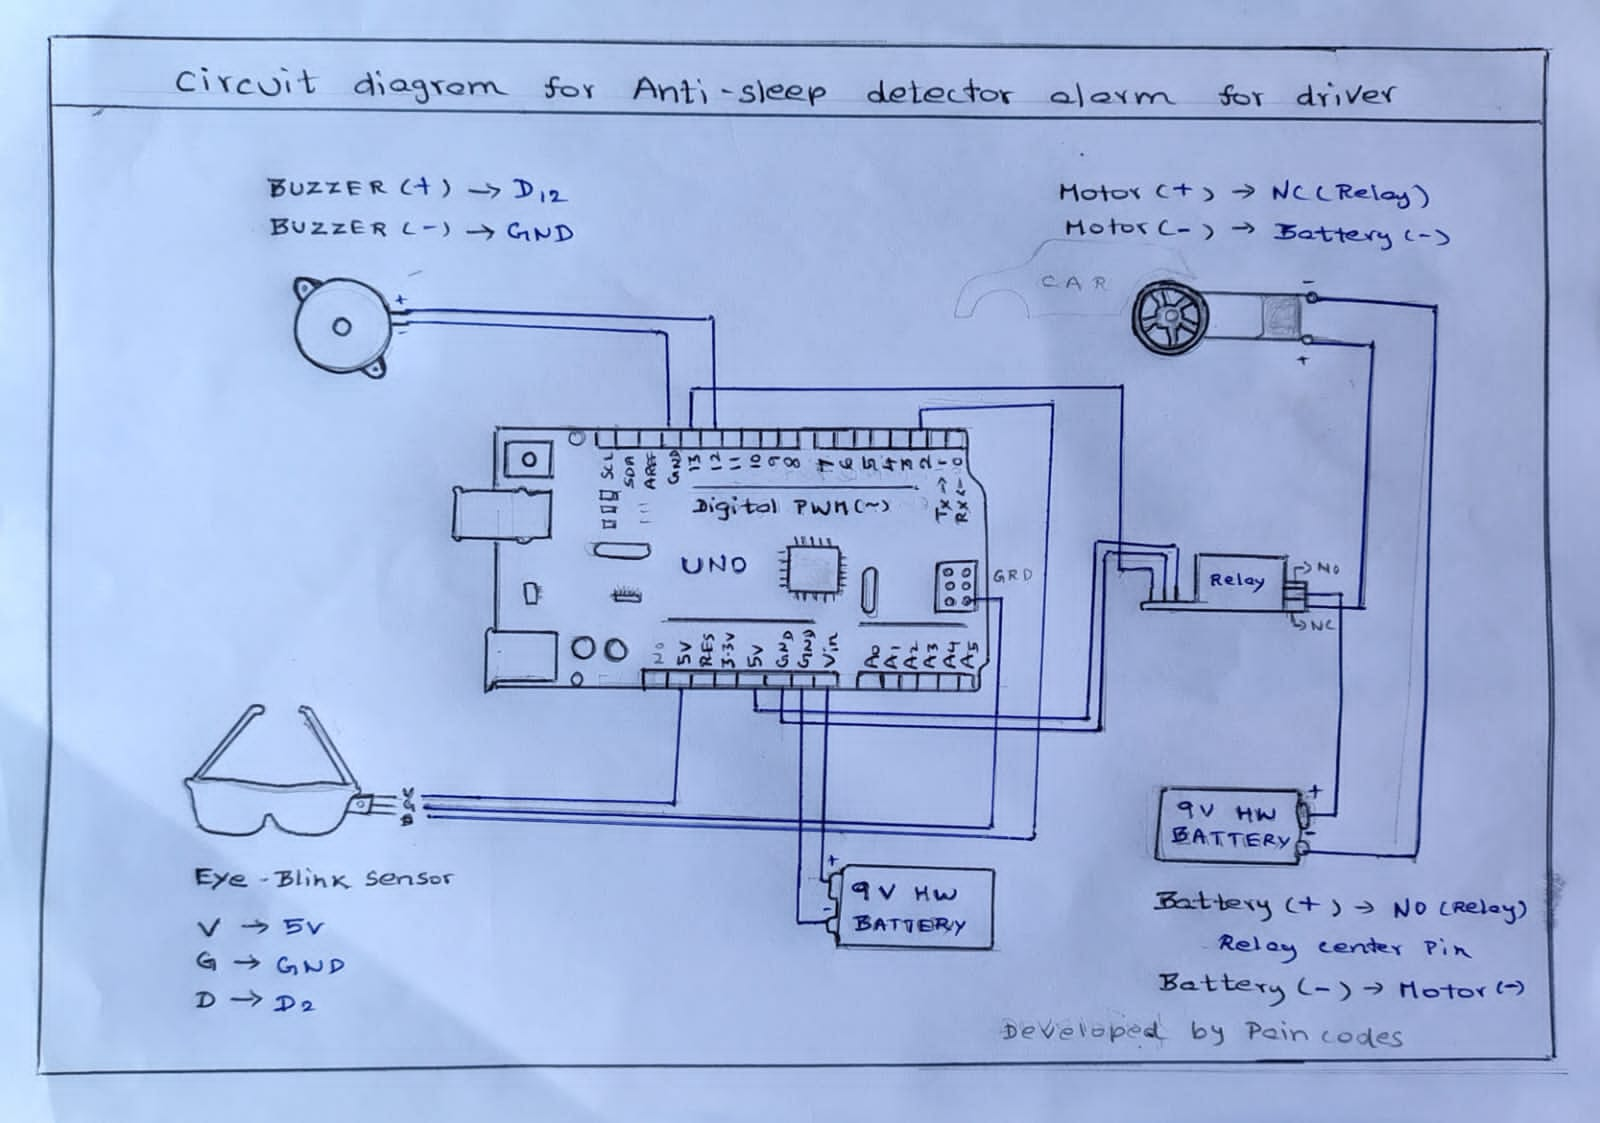 Circuit diagram for Anti-sleep detector alarm for driver
BUZZER (+) → D12
BUZZER (-) → GND
Motor (+) → NC (Relay)
Motor (-) → Battery (-)
CAR
-
+
+
-
SCL
SDA
AREF
GND
13
12
11
10
9
8
7
6
5
4
3
2
1
0
TX→
RX←
Digital PWM(~)
UNO
GRD
Relay
→NO
→NC
NO
5V
RES
3.3V
5V
GND
GND
Vin
A0
A1
A2
A3
A4
A5
V
G
D
Eye-Blink sensor
V → 5V
G → GND
D → D2
+
-
9V HW
BATTERY
+
-
9V HW
BATTERY
Battery (+) → NO (Relay)
Relay center Pin
Battery (-) → Motor (-)
Developed by Pain codes